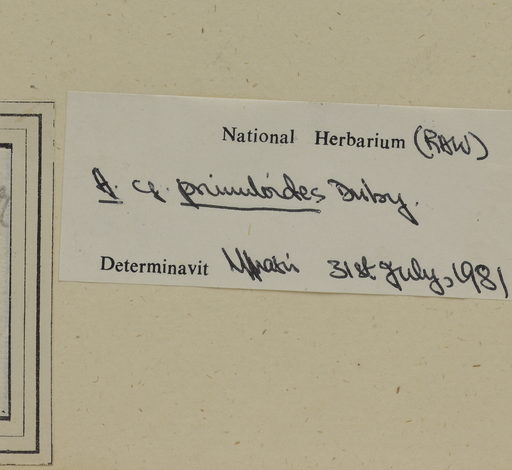 National Herbarium (RAW)
A. cf. primuloides Duby.
Determinavit 31st July, 1981